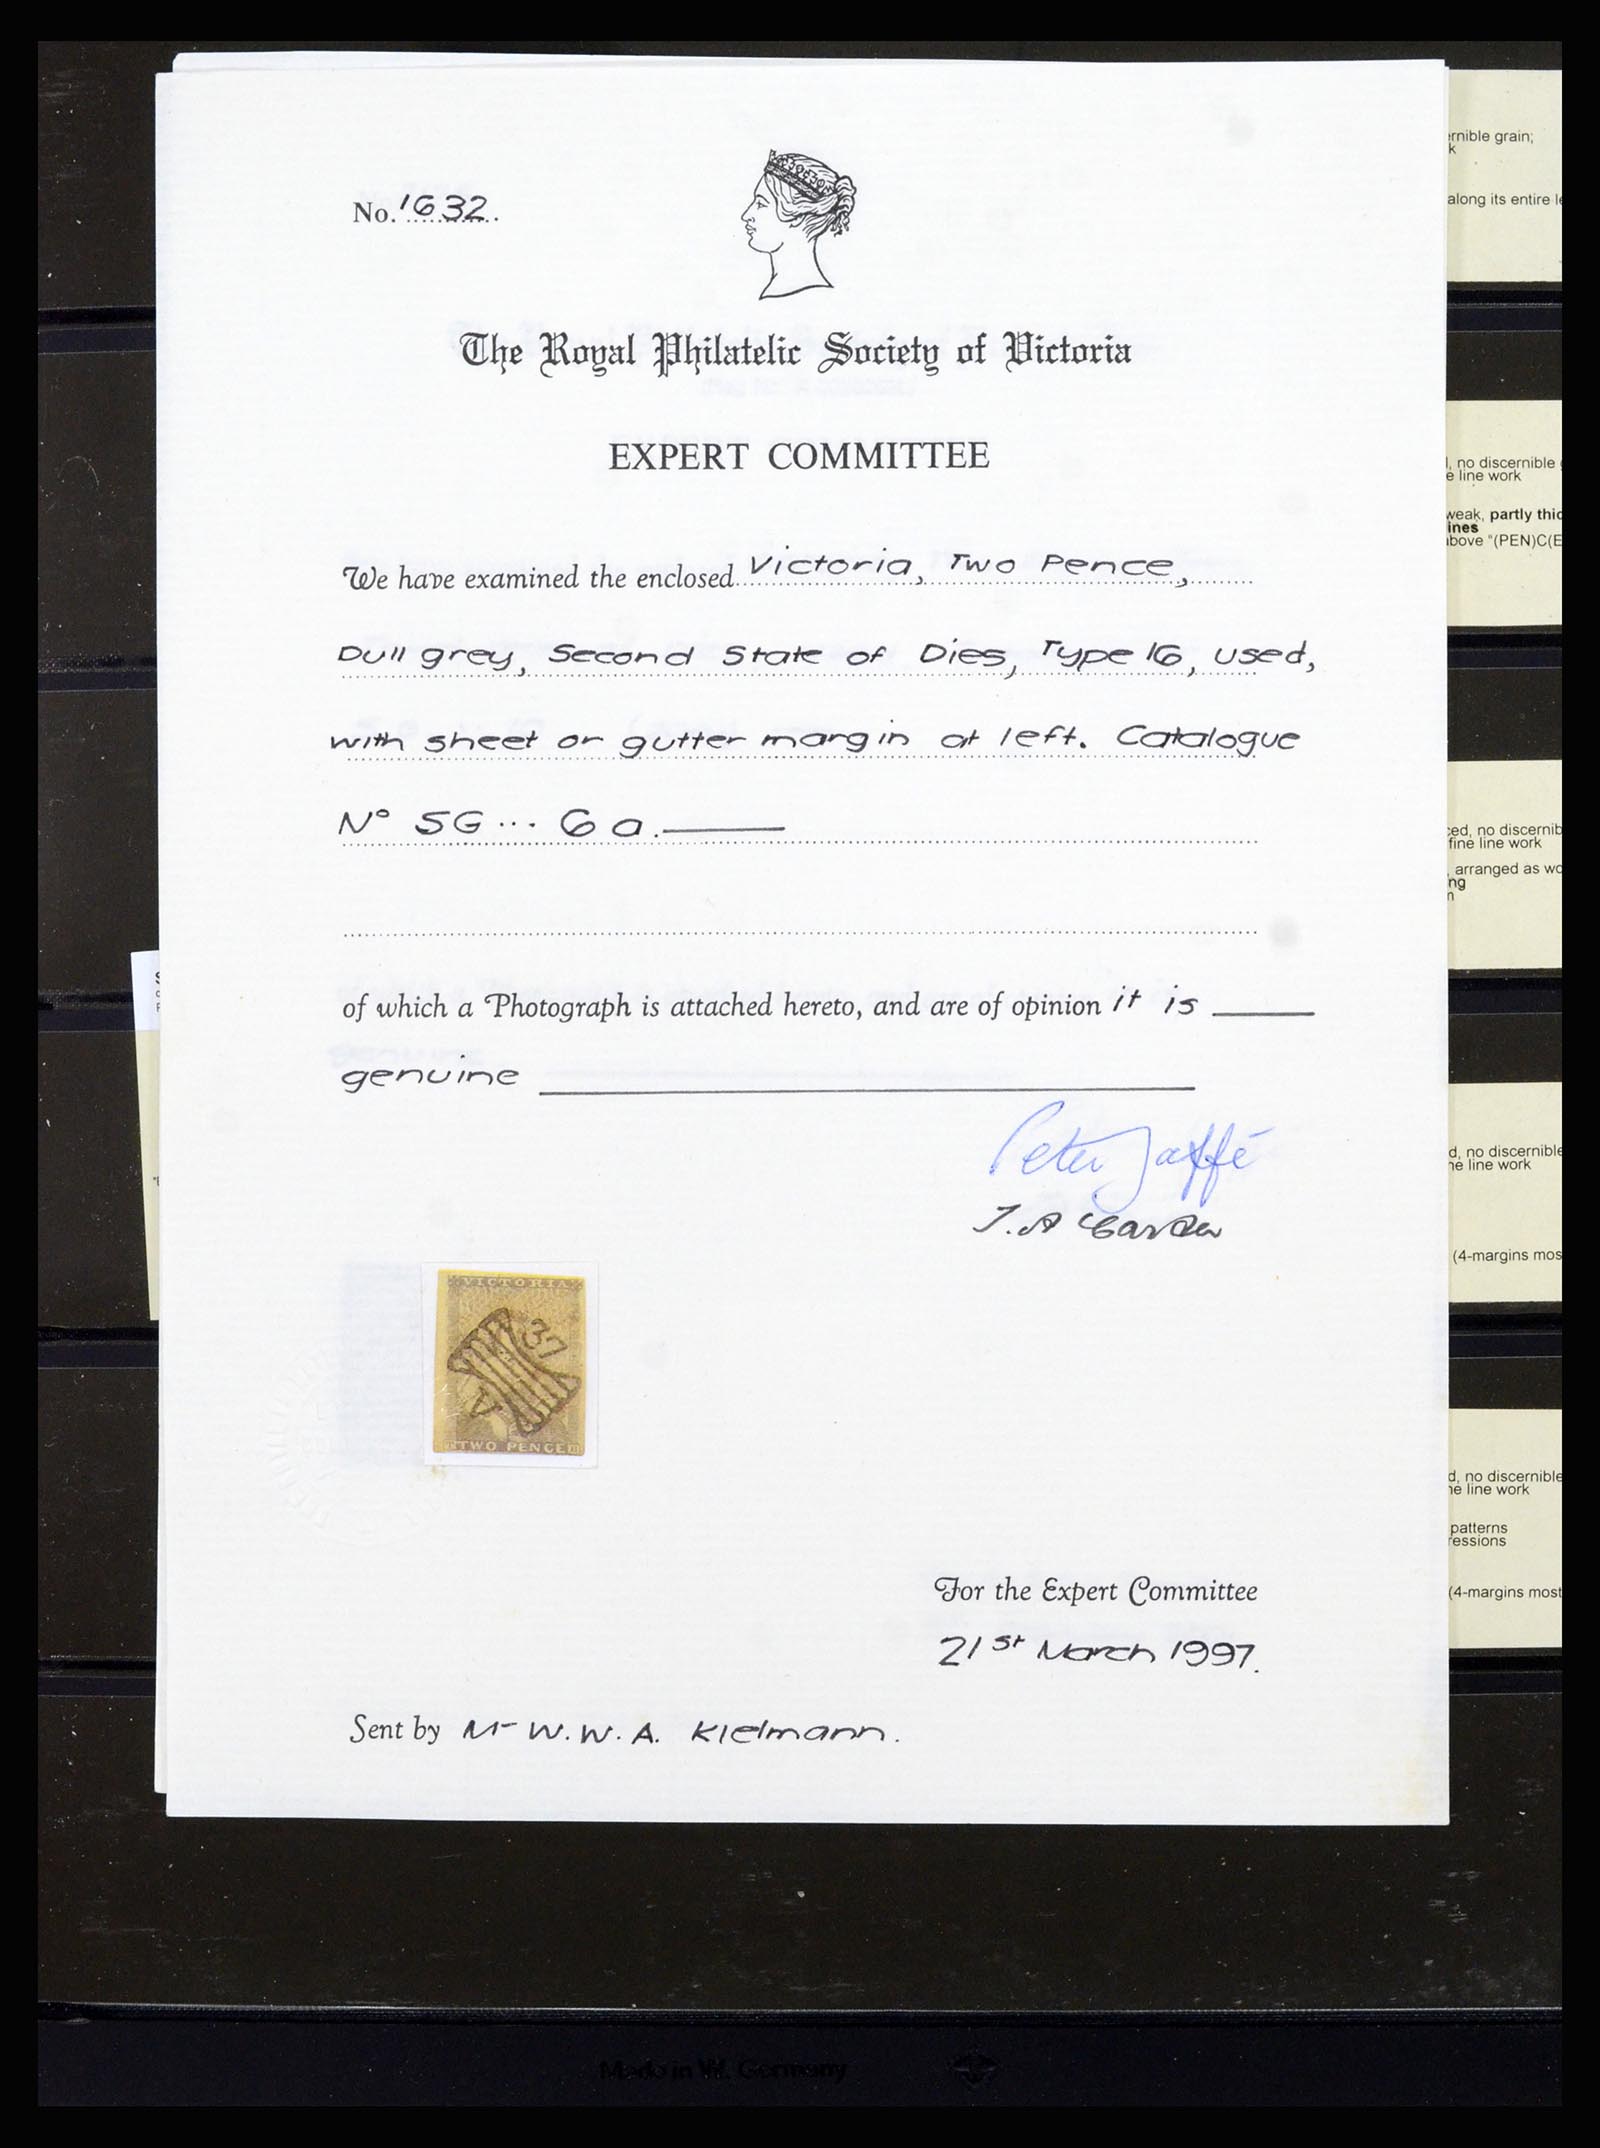 No. 1632.
The Royal Philatelic Society of Victoria
EXPERT COMMITTEE
We have examined the enclosed Victoria, Two Pence,
Dull grey, Second State of Dies, Type 16, used,
with sheet or gutter margin at left. Catalogue
No SG ... 6a.
of which a Photograph is attached hereto, and are of opinion it is
genuine
Peter Jaffé
VICTORIA
37
V
TWO PENCE
For the Expert Committee
21st March 1997.
Sent by Mr W.W.A. Kielmann.
Made in W. Germany
ernible grain;
k
along its entire
, no discernible
e line work
weak, partly
ines
above "(PEN)C(E
ced, no
fine line work
, arranged as
ng
d, no discernible
ne line work
(4-margins
d, no discernible
ne line work
patterns
ressions
(4-margins most